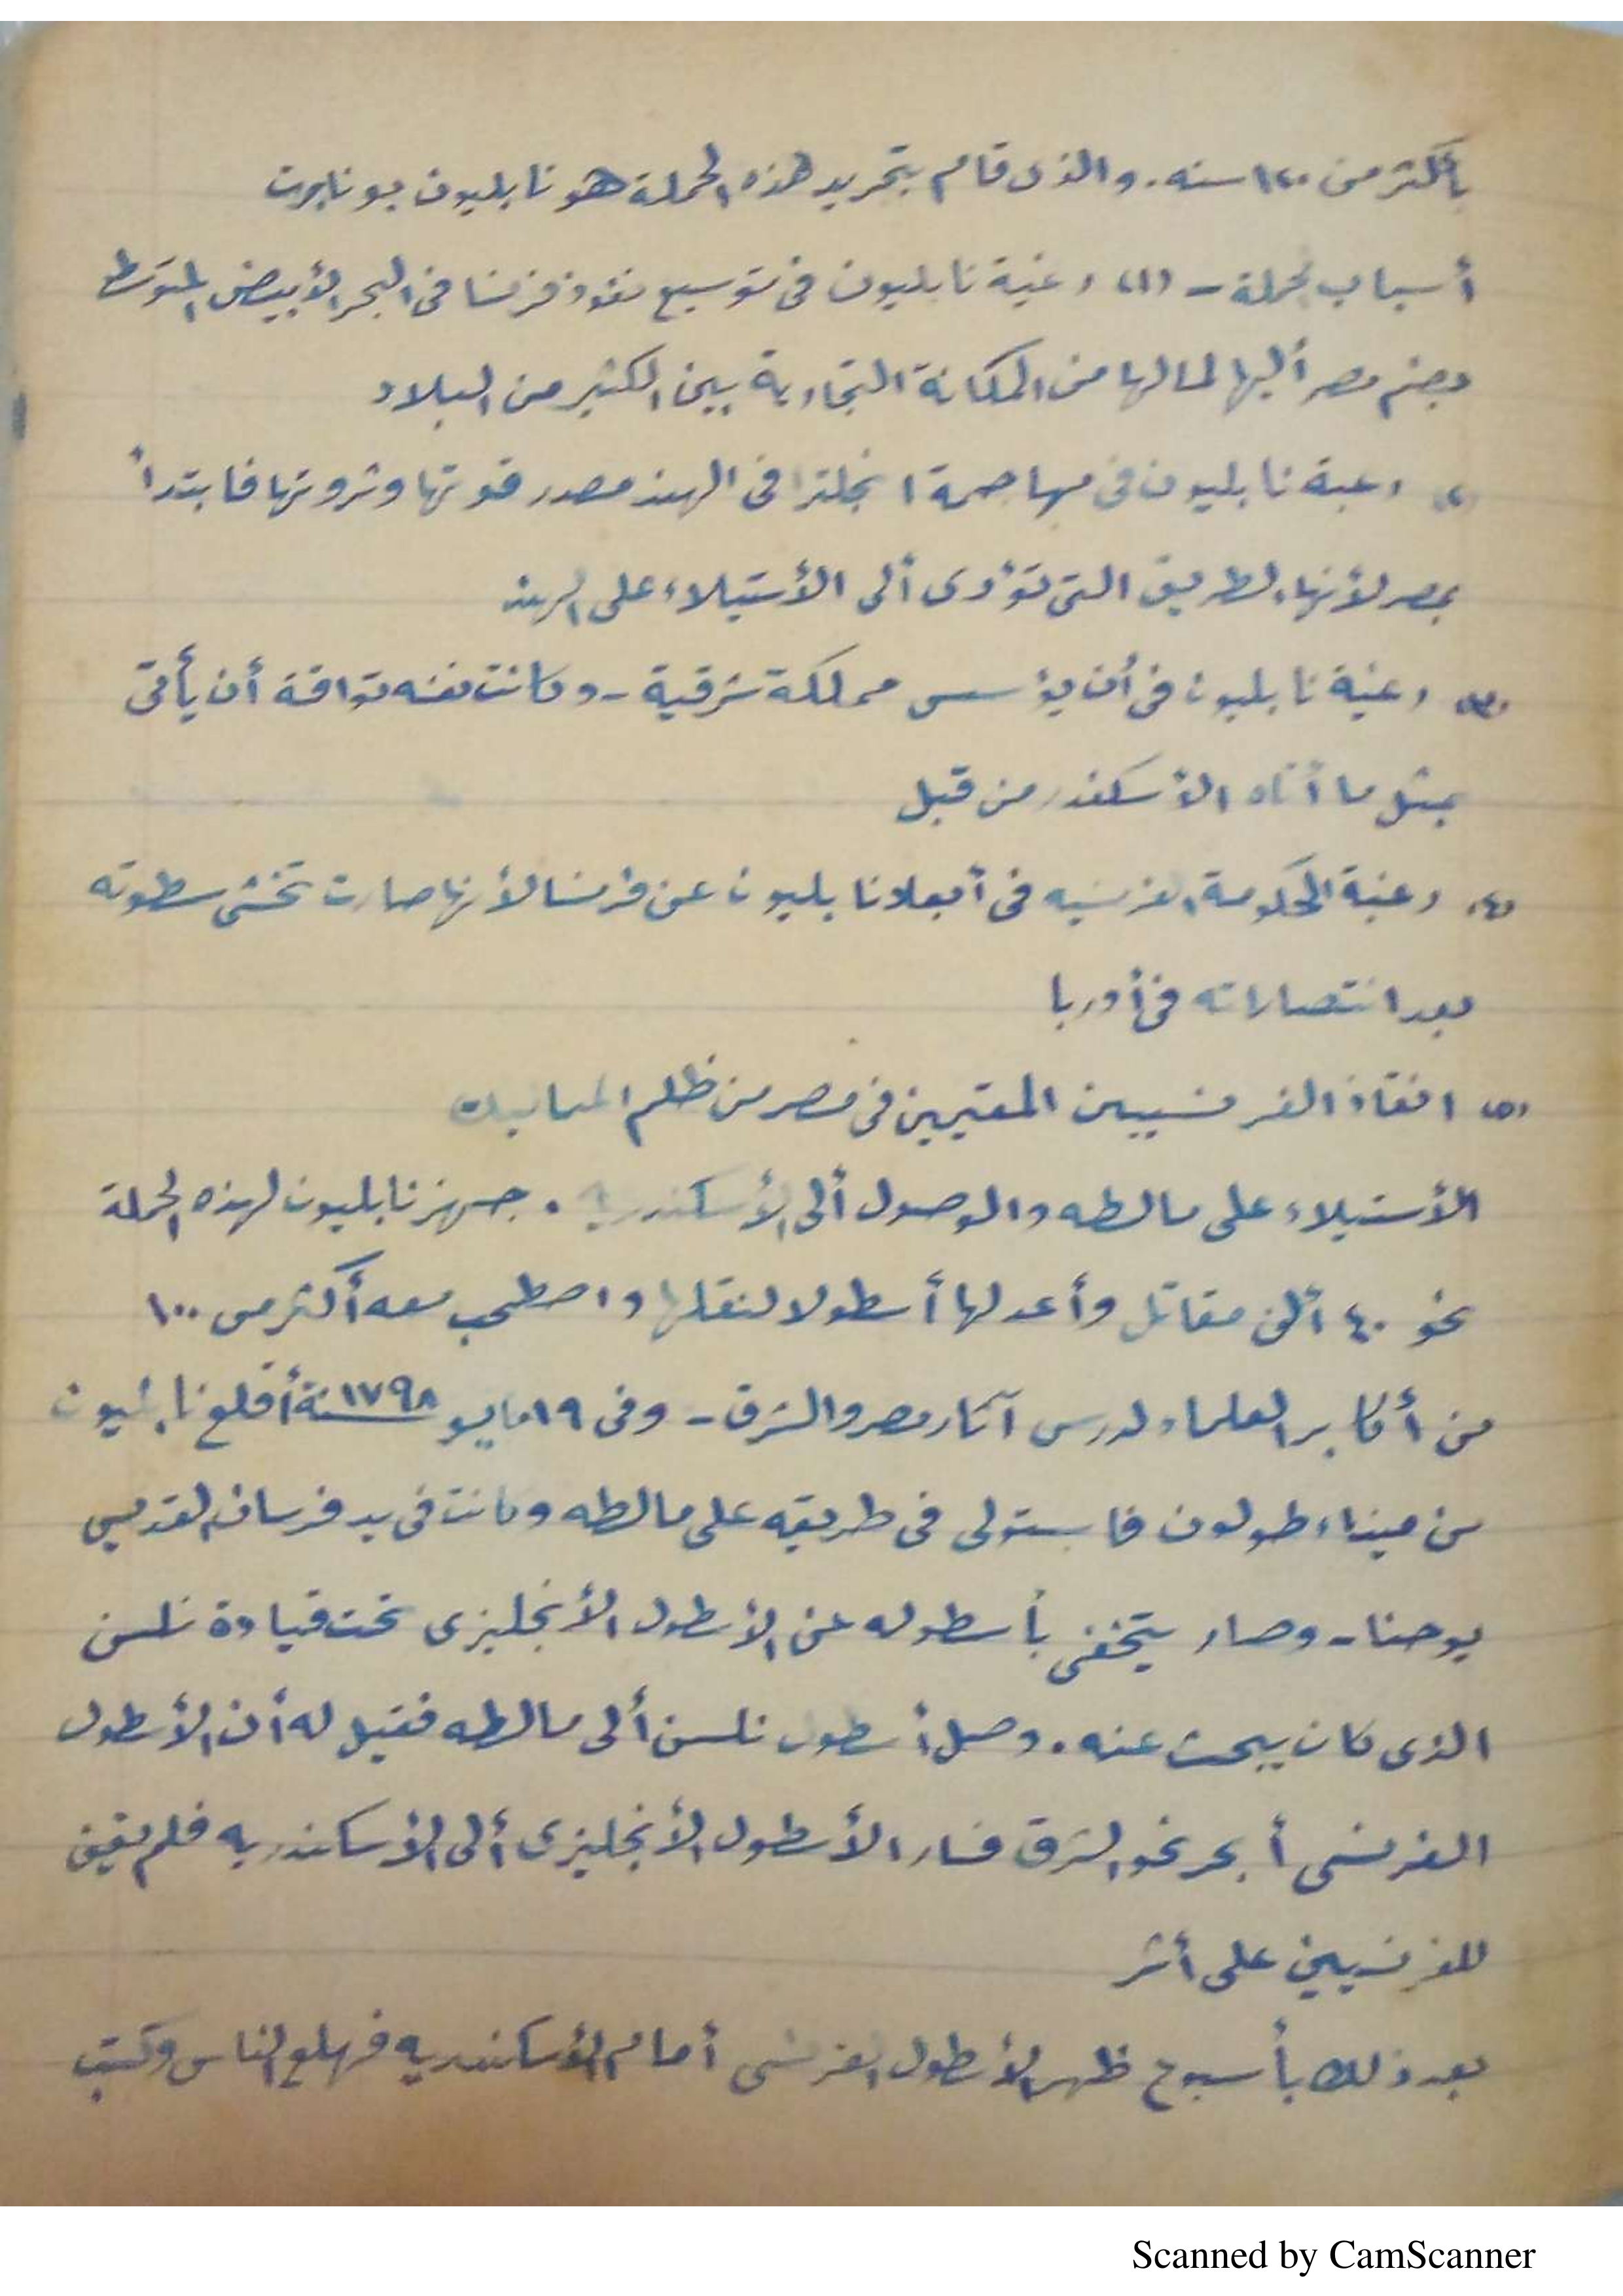 بأكثر من ١٢٠ سنه. والذى قام بتجريد هذه الحملة هو نابليون بونابرت
أسباب الحملة - (١) رغبة نابليون فى توسيع نفوذ فرنسا فى البحر الأبيض المتوسط
بضم مصر أليها لما لها من المكانة التجارية بين الكثير من البلاد
(٢) رغبة نابليون فى مهاجمة انجلترا فى الهند مصدر قوتها وثروتها فابتدأ
بمصر لأنها الطريق التى تؤدى ألى الأستيلاء على الهند
(٣) رغبة نابليون فى أن يؤسس مملكة شرقية - وكانت نفسه تواقة أن يأتى
بمثل ما أتاه الأسكندر من قبل
(٤) رغبة الحكومة الفرنسيه فى أبعاد نابليون عن فرنسا لأنها صارت تخشى سطوته
بعد انتصاراته فى أوربا
(٥) انقاذ الفرنسيين المقيمين فى مصر من ظلم المماليك
الأستيلاء على مالطه والوصول ألى الأسكندرية . جهز نابليون لهذه الحملة
نحو ٤٠ ألف مقاتل وأعد لها أسطولا لنقلها واصطحب معه أكثر من ١٠٠
من أكابر العلماء لدرس آثار مصر والشرق - وفى ١٩ مايو سنة ١٧٩٨ أقلع نابليون
من ميناء طولون فاستولى فى طريقه على مالطه وكانت فى يد فرسان القديس
يوحنا - وصار يتخفى بأسطوله عن الأسطول الأنجليزى تحت قيادة نلسن
الذى كان يبحث عنه . وصل أسطول نلسن ألى مالطه فقيل له أن الأسطول
الفرنسى أبحر نحو الشرق فسار الأسطول الأنجليزى ألى الأسكندريه فلم يقف
للفرنسيين على أثر
بعد ذلك بأسبوع ظهر الأسطول الفرنسى أمام الأسكندريه فهلع الناس وكتب
Scanned by CamScanner